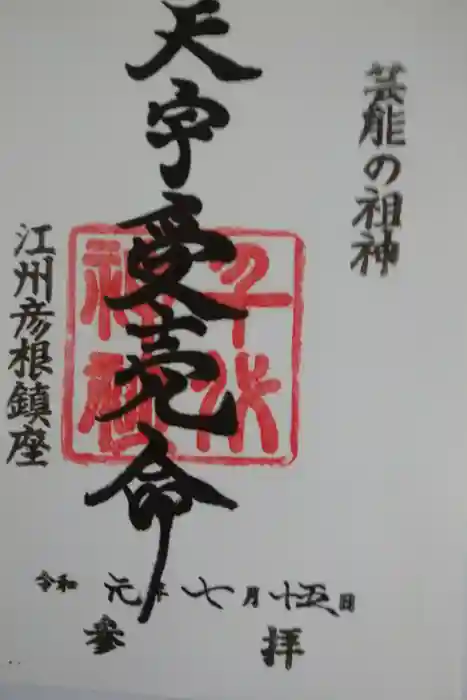 芸能の祖神
天宇受売命
千代
神社
江州彦根鎮座
令和元年七月十五日
参拝